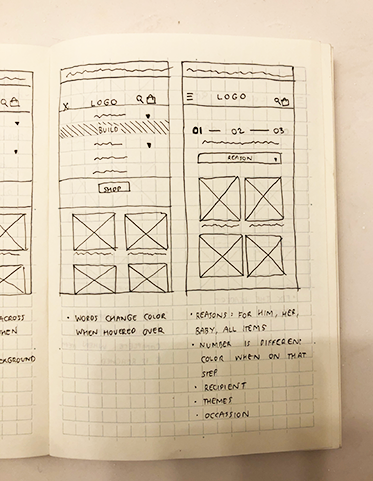 ACROSS
X LOGO
BUILD
SHOP
• WORDS CHANGE COLOR
WHEN HOVERED OVER
LOGO
01 — 02 — 03
REASON
• REASONS: FOR HIM, HER,
BABY, ALL ITEMS
• NUMBER IS DIFFERENT
COLOR WHEN ON THAT
STEP
• RECIPIENT
• THEMES
• OCCASSION